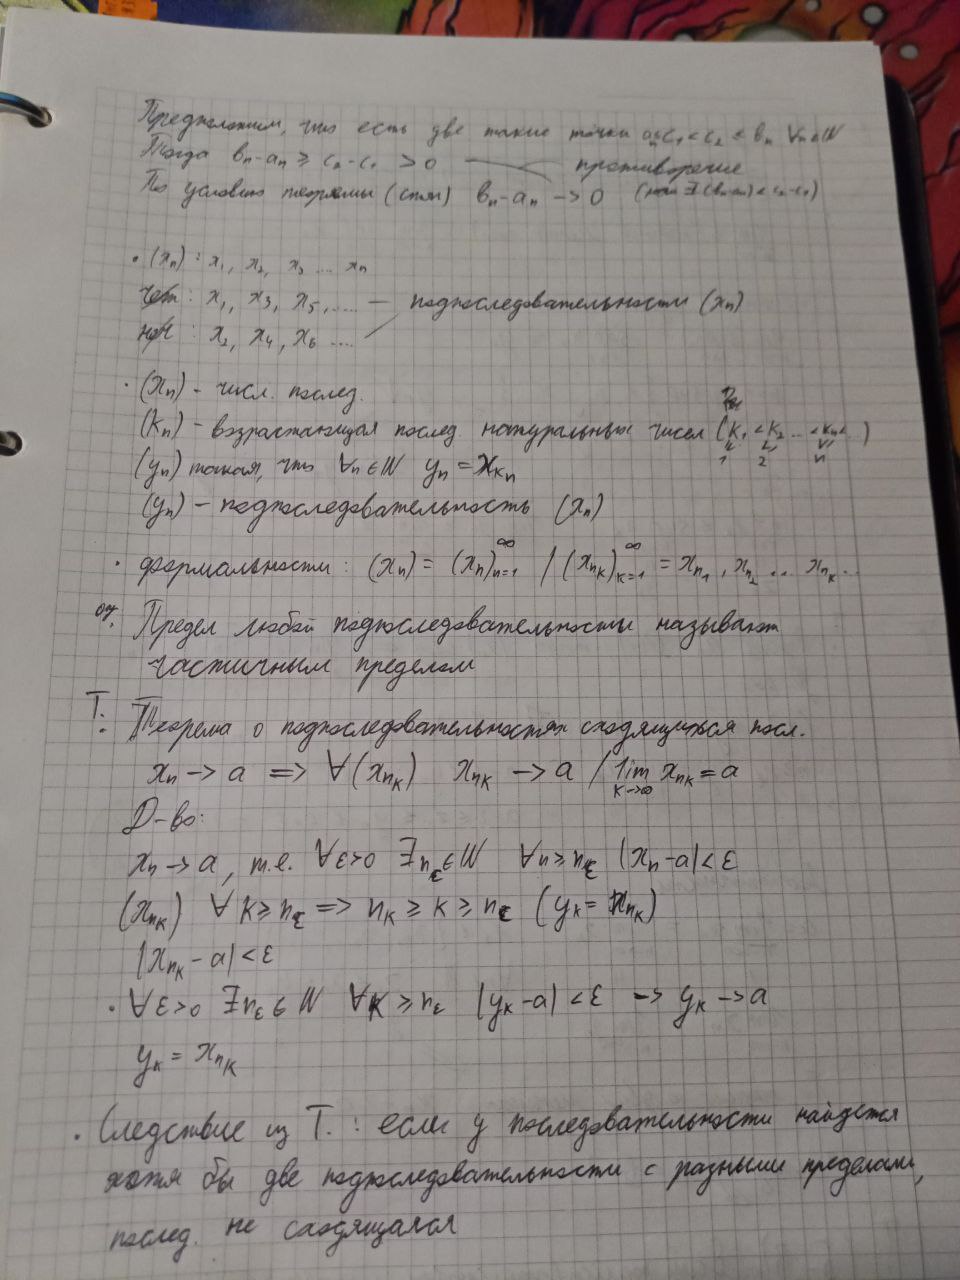 Предположим, что есть две такие точки aₙ≤c₁<c₂≤bₙ ∀n∈ℕ
Тогда bₙ-aₙ ≥ c₂-c₁ > 0 противоречие
По условию теоремы (стяг) bₙ-aₙ → 0
• (xₙ) : x₁, x₂, x₃ ... xₙ
: x₁, x₃, x₅, .... — подпоследовательности (xₙ)
: x₂, x₄, x₆ ....
• (xₙ) - числ. послед.
(kₙ) - возрастающая послед. натуральных чисел (k₁ < k₂ ... < kₙ < )
1 2 n
(yₙ) такая, что ∀n∈ℕ yₙ = x_{kₙ}
(yₙ) - подпоследовательность (xₙ)
• формальности: (xₙ) = (xₙ)_{n=1}^∞ / (x_{n_k})_{k=1}^∞ = x_{n₁}, x_{n₂} ... x_{n_k} ...
Предел любой подпоследовательности называют
частичным пределом
Т: Теорема о подпоследовательностях сходящихся посл.
xₙ → a => ∀(x_{n_k}) x_{n_k} → a / lim_{k→∞} x_{n_k} = a
Д-во:
xₙ → a, т.е. ∀ε>0 ∃n_ε∈ℕ ∀n≥n_ε |xₙ-a|<ε
(x_{n_k}) ∀k≥n_ε => n_k ≥ k ≥ n_ε (y_k = x_{n_k})
|x_{n_k} - a| < ε
• ∀ε>0 ∃n_ε∈ℕ ∀k≥n_ε |y_k-a|<ε → y_k → a
y_k = x_{n_k}
• Следствие из Т. : если у последовательности найдется
хотя бы две подпоследовательности с разными пределами,
послед. не сходящаяся